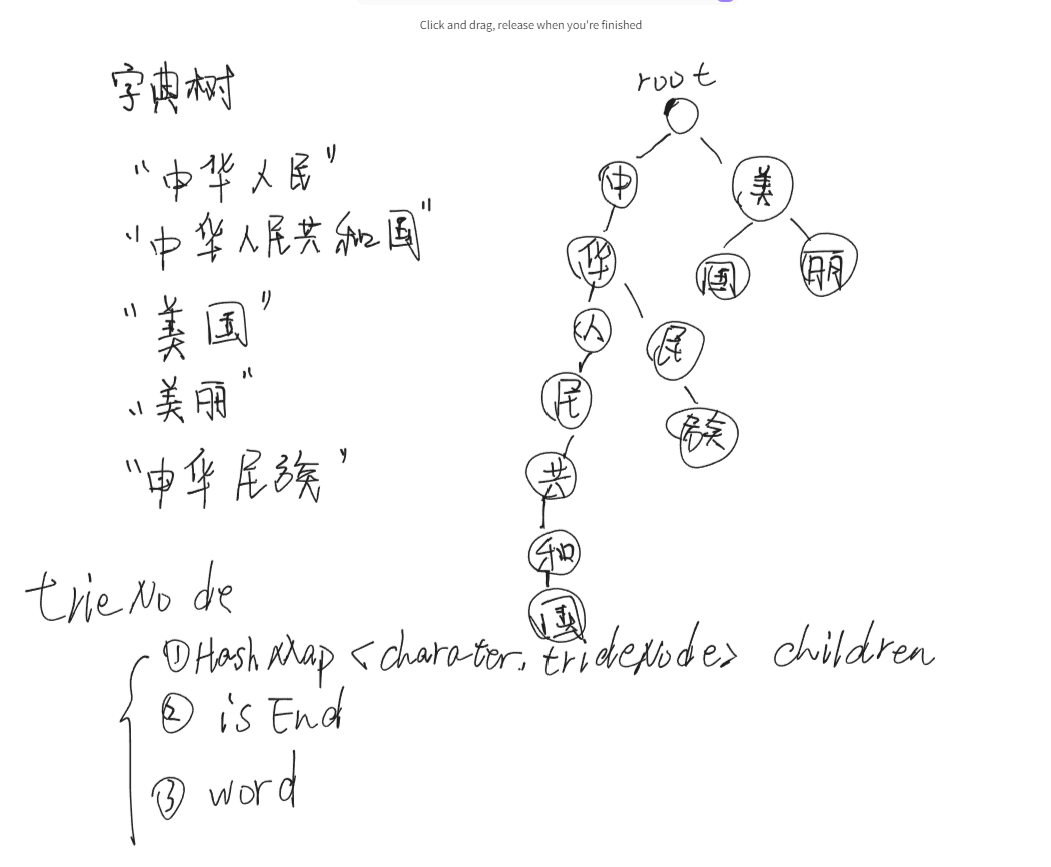 Click and drag, release when you're finished
字典树
"中华人民"
"中华人民共和国"
"美国"
"美丽"
"中华民族"
root
中
美
华
国
丽
人
民
民
族
共
和
国
trieNode
①HashMap<charater, trideNode> children
② isEnd
③ word